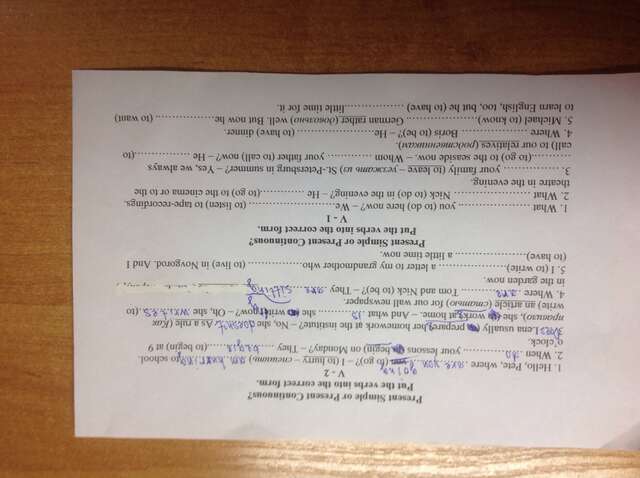 Present Simple or Present Continuous?
Put the verbs into the correct form.
V - 2
1. Hello, Pete, where are you going (to go)? – I (to hurry – спешить) am hurring to school.
2. When ..do............ your lessons (to begin) on Monday? – They .....begin.......(to begin) at 9
o'clock.
3. Does Lena usually prepares her homework at the institute? – No, she doesn't. As a rule (Как
правило), she works at home. – And what .is............ she writing now? – Oh, she writes.(to
write) an article (статью) for our wall newspaper.
4. Where ..are.......... Tom and Nick (to be)? – They ..are.. sitting
in the garden now.
5. I (to write)................... a letter to my grandmother who............... (to live) in Novgorod. And I
(to have)............... a little time now.
Present Simple or Present Continuous?
Put the verbs into the correct form.
V - 1
1. What .................... you (to do) here now? – We........................ (to listen) to tape-recordings.
2. What .................... Nick (to do) in the evening? – He .............(to go) to the cinema or to the
theatre in the evening.
3. ................ your family (to leave – уезжать из) St.-Petersburg in summer? – Yes, we always
...........(to go) to the seaside now. – Whom .............. your father (to call) now? – He ................(to
call) to our relatives (родственникам).
4. Where .................. Boris (to be)? – He...................... (to have) dinner.
5. Michael (to know).................... German rather (довольно) well. But now he................. (to want)
to learn English, too, but he (to have) .................little time for it.